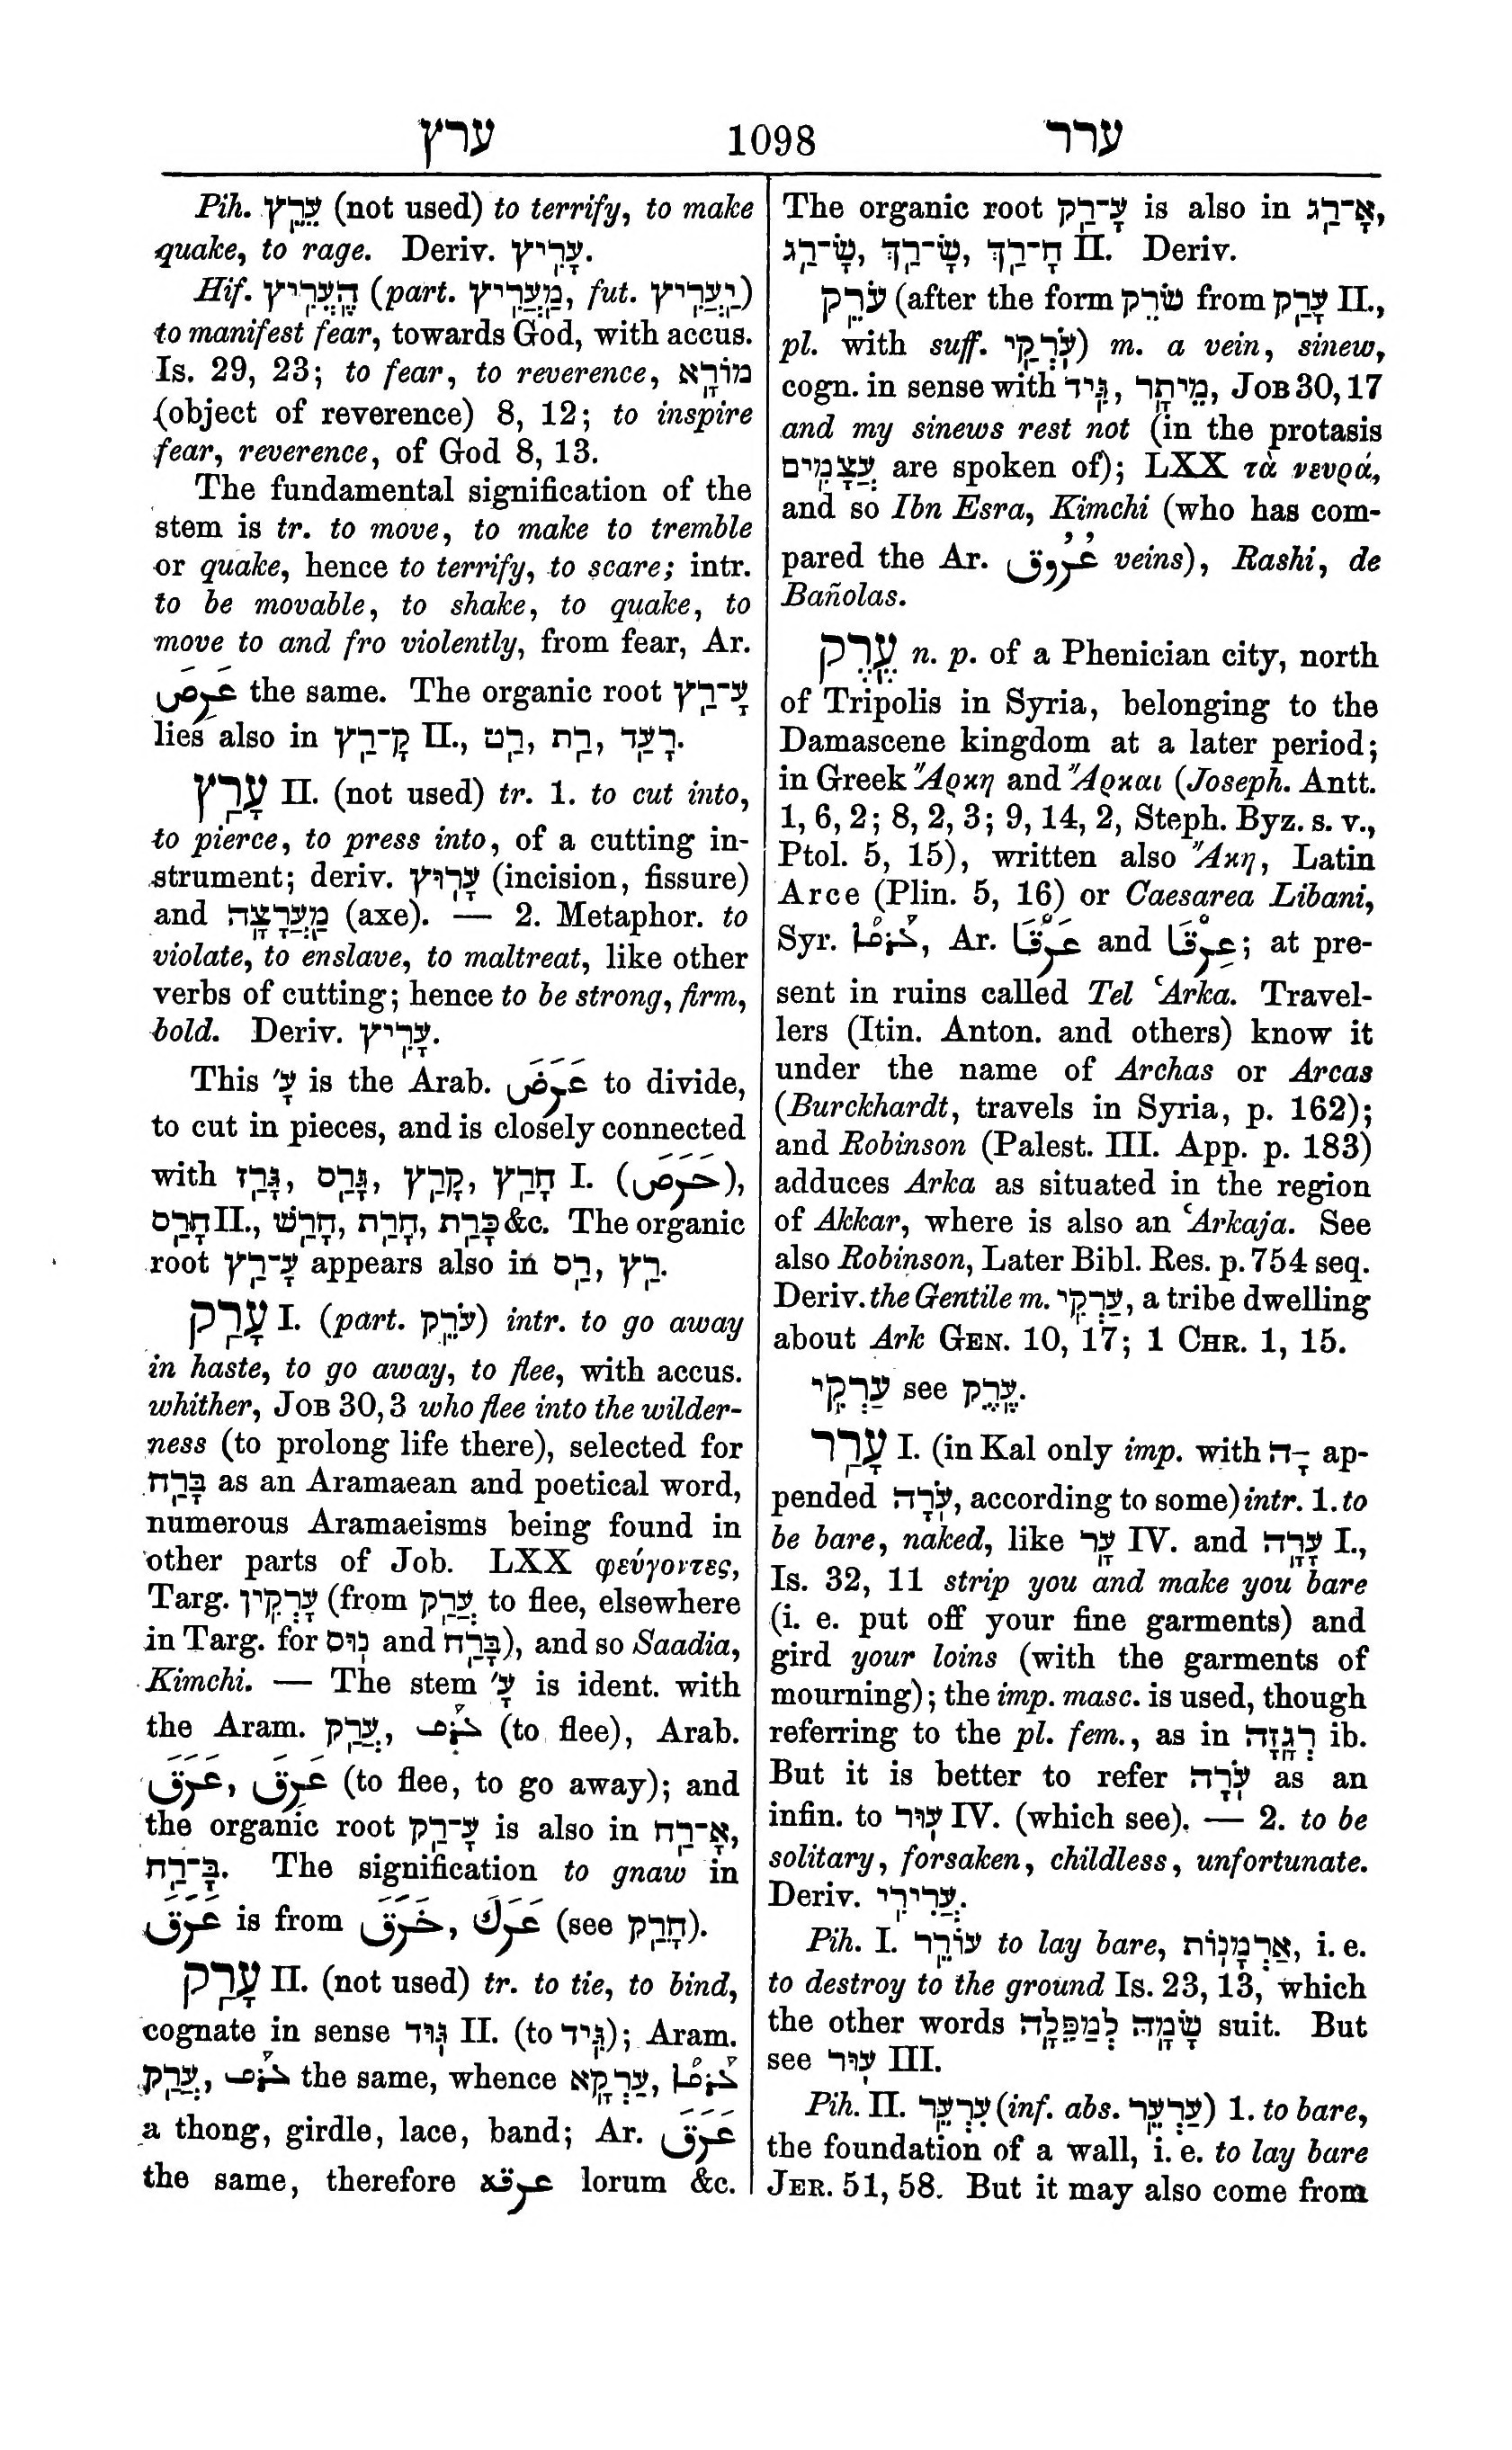 ערץ 1098 ערר
Pih. עֵרֵץ (not used) to terrify, to make
quake, to rage. Deriv. עָרִיץ.
Hif. הֶעֱרִיץ (part. מַעֲרִיץ, fut. יַעֲרִיץ)
to manifest fear, towards God, with accus.
Is. 29, 23; to fear, to reverence, מוֹרָא
(object of reverence) 8, 12; to inspire
fear, reverence, of God 8, 13.
The fundamental signification of the
stem is tr. to move, to make to tremble
or quake, hence to terrify, to scare; intr.
to be movable, to shake, to quake, to
move to and fro violently, from fear, Ar.
عَرِصَ the same. The organic root עָ־רַץ
lies also in קָ־רַץ II., רַט, רַת, רָעַד.
עָרַץ II. (not used) tr. 1. to cut into,
to pierce, to press into, of a cutting in-
strument; deriv. עָרוּץ (incision, fissure)
and מַעֲרָצָה (axe). — 2. Metaphor. to
violate, to enslave, to maltreat, like other
verbs of cutting; hence to be strong, firm,
bold. Deriv. עָרִיץ.
This עָ׳ is the Arab. عَرَضَ to divide,
to cut in pieces, and is closely connected
with גָּרַז, גָּרַס, קָרַץ, חָרַץ I. (حَرَصَ),
חָרַס II., חָרַשׁ, חָרַת, כָּרַת &c. The organic
root עָ־רַץ appears also in רַס, רַץ.
עָרַק I. (part. עֹרֵק) intr. to go away
in haste, to go away, to flee, with accus.
whither, Job 30, 3 who flee into the wilder-
ness (to prolong life there), selected for
בָּרַח as an Aramaean and poetical word,
numerous Aramaeisms being found in
other parts of Job. LXX φεύγοντες,
Targ. עָרְקִין (from עֲרַק to flee, elsewhere
in Targ. for נוּס and בָּרַח), and so Saadia,
Kimchi. — The stem עָ׳ is ident. with
the Aram. עֲרַק, ܥܪܩ (to flee), Arab.
عَرَقَ, عَرِقَ (to flee, to go away); and
the organic root עָ־רַק is also in אָ־רַח,
בָּ־רַח. The signification to gnaw in
عَرَقَ is from خَرَقَ, عَرَكَ (see חָרַק).
עָרַק II. (not used) tr. to tie, to bind,
cognate in sense גּוּד II. (to גִּיד); Aram.
עֲרַק, ܥܪܩ the same, whence עַרְקָא, ܥܪܩܐ
a thong, girdle, lace, band; Ar. عَرَقَ
the same, therefore عرقة lorum &c.
The organic root עָ־רַק is also in אָ־רַג,
שָׂ־רַג, שָׂ־רַךְ, חָ־רַךְ II. Deriv.
עֹרֵק (after the form שׂרֵק from עָרַק II.,
pl. with suff. עֹרְקַי) m. a vein, sinew,
cogn. in sense with גִּיד, מֵיתָר, Job 30, 17
and my sinews rest not (in the protasis
עֲצָמִים are spoken of); LXX τὰ νευρά,
and so Ibn Esra, Kimchi (who has com-
pared the Ar. عُرُوق veins), Rashi, de
Bañolas.
עֶרֶק n. p. of a Phenician city, north
of Tripolis in Syria, belonging to the
Damascene kingdom at a later period;
in Greek Ἄρκη and Ἄρκαι (Joseph. Antt.
1, 6, 2; 8, 2, 3; 9, 14, 2, Steph. Byz. s. v.,
Ptol. 5, 15), written also Ἄκη, Latin
Arce (Plin. 5, 16) or Caesarea Libani,
Syr. ܥܪܩܐ, Ar. عَرْقَا and عِرْقَا; at pre-
sent in ruins called Tel ʿArka. Travel-
lers (Itin. Anton. and others) know it
under the name of Archas or Arcas
(Burckhardt, travels in Syria, p. 162);
and Robinson (Palest. III. App. p. 183)
adduces Arka as situated in the region
of Akkar, where is also an ʿArkaja. See
also Robinson, Later Bibl. Res. p. 754 seq.
Deriv. the Gentile m. עַרְקִי, a tribe dwelling
about Ark Gen. 10, 17; 1 Chr. 1, 15.
עַרְקִי see עֶרֶק.
עָרַר I. (in Kal only imp. with ־ָה ap-
pended עֹרָה, according to some) intr. 1. to
be bare, naked, like עָר IV. and עָרָה I.,
Is. 32, 11 strip you and make you bare
(i. e. put off your fine garments) and
gird your loins (with the garments of
mourning); the imp. masc. is used, though
referring to the pl. fem., as in רְגָזָה ib.
But it is better to refer עֹרָה as an
infin. to עוּר IV. (which see). — 2. to be
solitary, forsaken, childless, unfortunate.
Deriv. עֲרִירִי.
Pih. I. עוֹרֵר to lay bare, אַרְמָנוֹת, i. e.
to destroy to the ground Is. 23, 13, which
the other words שָׂמָהּ לְמַפֵּלָה suit. But
see עוּר III.
Pih. II. עִרְעֵר (inf. abs. עַרְעֵר) 1. to bare,
the foundation of a wall, i. e. to lay bare
Jer. 51, 58. But it may also come from